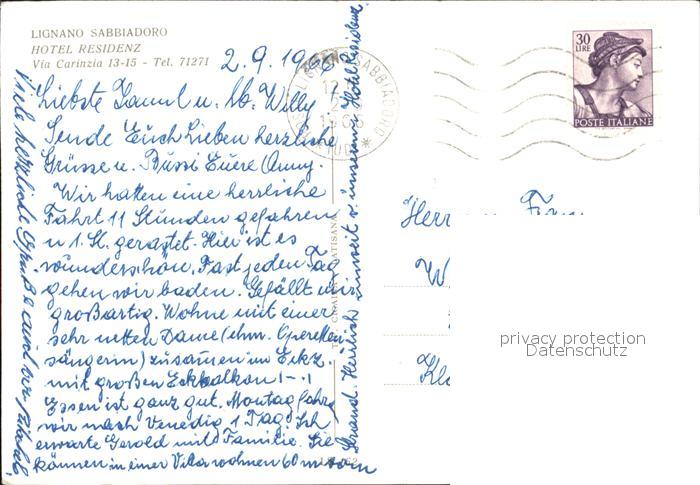 LIGNANO SABBIADORO
HOTEL RESIDENZ
Via Carinzia 13-15 - Tel. 71271
2.9.1966
Liebste u. lb. Willy
Sende Euch Lieben herzliche
Grüsse u. Bussi Euere Anny.
Wir hatten eine herrliche
Fahrt 11 Stunden gefahren
u 1. St. gerastet. Hier ist es
wunderschön. Fast jeden Tag
gehen wir baden. Gefällt mir
großartig. Wohne mit einer
sehr netten Dame (ehm. Operetten-
sängerin) zusammen im Eckz.
mit großen Eckbalkon 1-.1
Essen ist ganz gut. Montag fahren
wir nach Venedig 1 Tag. Ich
erwarte Gerold mit Familie. Sie
können in einer Villa wohnen 60 m vom
Strand. Herrlich u. unserem Hotel Residenz.
Viele herzliche Grüße auch von
LIGNANO SABBIADORO
30
LIRE
POSTE ITALIANE
Herr
W
privacy protection
Datenschutz